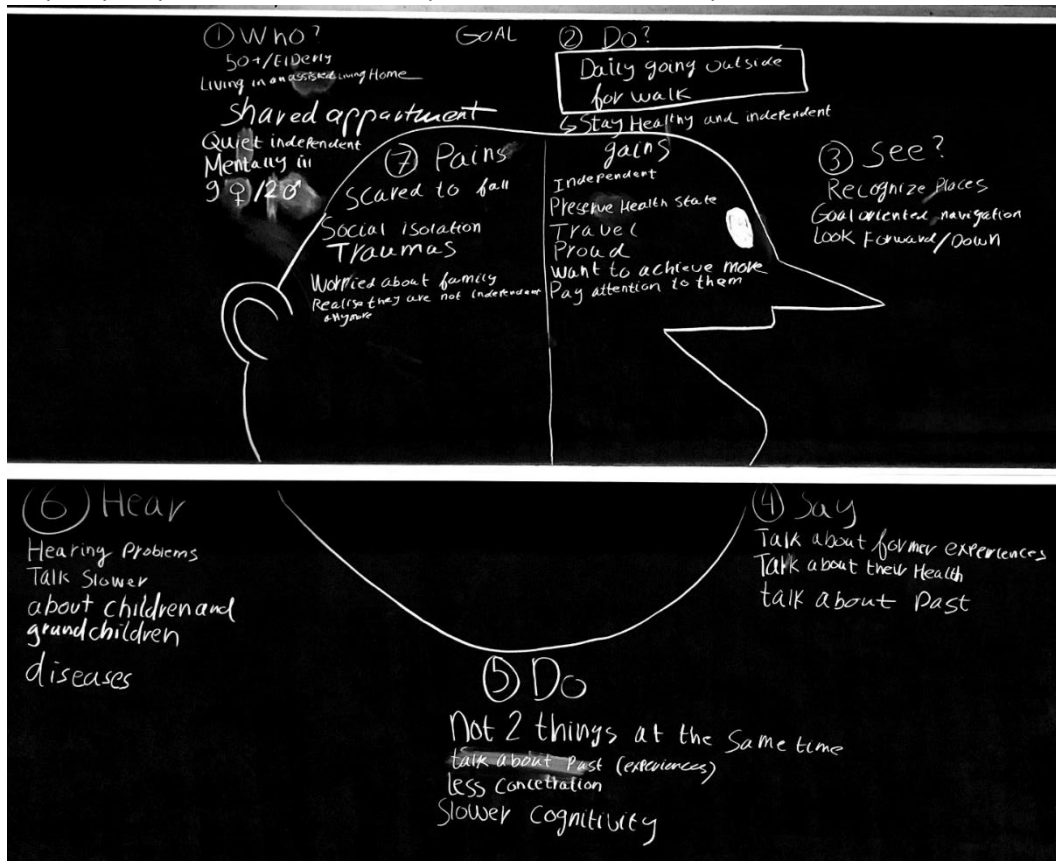 ① Who?
50+/Elderly
Living in an assisted Living Home
shared appartment
Quiet independent
Mentally ill
9 ♀/2 ♂
GOAL
② Do?
Daily going outside
for walk
↳ Stay Healthy and independent
③ See?
Recognize Places
Goal oriented navigation
Look Forward/Down
⑦ Pains
Scared to fall
Social isolation
Traumas
Worried about family
Realise they are not independent
anymore
gains
Independent
Preserve Health State
Travel
Proud
want to achieve more
Pay attention to them
⑥ Hear
Hearing Problems
Talk Slower
about children and
grandchildren
diseases
④ Say
Talk about former experiences
Talk about their Health
talk about Past
⑤ Do
Not 2 things at the same time
talk about Past (experiences)
less concetration
Slower cognitivity